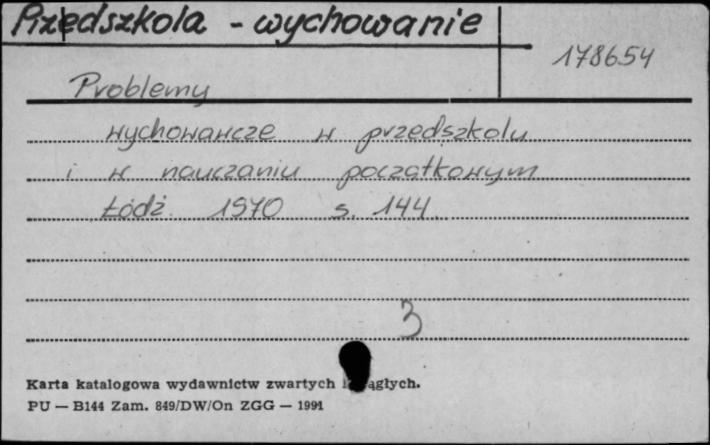 Przedszkola - wychowanie
178654
Problemy
wychowawcze w przedszkolu
i w nauczaniu początkowym
Łódź 1970 s. 144.
3
Karta katalogowa wydawnictw zwartych i ciągłych.
PU — B144 Zam. 849/DW/On ZGG — 1991